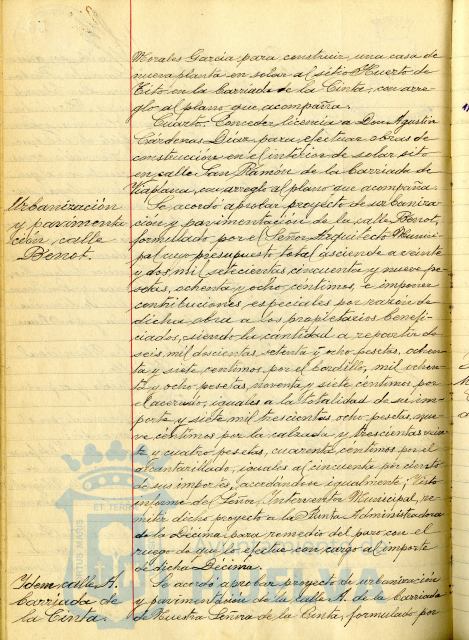 Morales García para construir una casa de
nueva planta en solar al sitio Huerto de
Tito en la barriada de la Cinta, con arre-
glo al plano que acompaña.
Cuarto. Conceder licencia a Don Agustín
Cárdenas Díaz para efectuar obras de
construcción en el interior de solar sito
en calle San Ramón de la barriada de
Viaplana, con arreglo al plano que acompaña.
Urbanización
y pavimenta
ción calle
Benot.
Se acordó aprobar proyecto de urbaniza-
ción y pavimentación de la calle Benot,
formulado por el Señor Arquitecto Munici-
pal cuyo presupuesto total asciende a veinte
y dos mil setecientas cincuenta y nueve pe-
setas, ochenta y ocho céntimos, e imponer
contribuciones especiales por razón de
dicha obra a los propietarios benefi-
ciados, siendo la cantidad a repartir de
seis mil doscientas ochenta y ocho pesetas, ochen-
ta y siete céntimos por el bordillo, mil ochen-
ta y ocho pesetas, noventa y siete céntimos por
el acerado, iguales a la totalidad de su im-
porte y siete mil trescientas ocho pesetas, nue-
ve céntimos por la calzada y trescientas vein-
te y cuatro pesetas, cuarenta céntimos por el
alcantarillado, iguales al cincuenta por ciento
de sus importes, acordándose igualmente, visto
informe del Señor Interventor Municipal, re-
mitir dicho proyecto a la Junta Administradora
de la Décima para remedio del paro con el
ruego de que lo efectúe con cargo al importe
de dicha Décima.
Idem calle A.
barriada de
la Cinta.
Se acordó aprobar proyecto de urbanización
y pavimentación de la calle A. de la barriada
de Nuestra Señora de la Cinta, formulado por
HUELVA